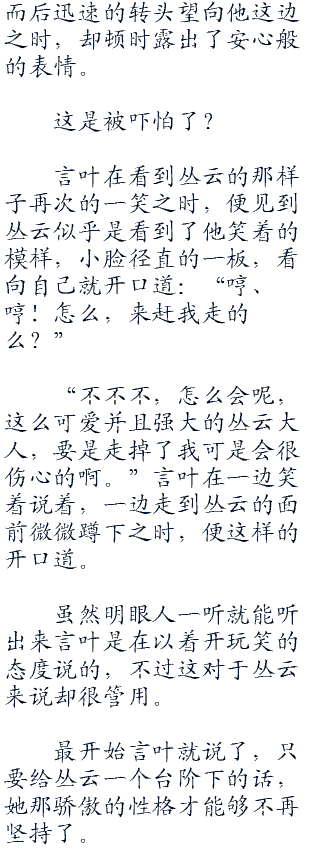 而后迅速的转头望向他这边
之时，却顿时露出了安心般
的表情。
这是被吓怕了？
言叶在看到丛云的那样
子再次的一笑之时，便见到
丛云似乎是看到了他笑着的
模样，小脸径直的一板，看
向自己就开口道：“哼、
哼！怎么，来赶我走的
么？”
“不不不，怎么会呢，
这么可爱并且强大的丛云大
人，要是走掉了我可是会很
伤心的啊。”言叶在一边笑
着说着，一边走到丛云的面
前微微蹲下之时，便这样的
开口道。
虽然明眼人一听就能听
出来言叶是在以着开玩笑的
态度说的，不过这对于丛云
来说却很管用。
最开始言叶就说了，只
要给丛云一个台阶下的话，
她那骄傲的性格才能够不再
坚持了。